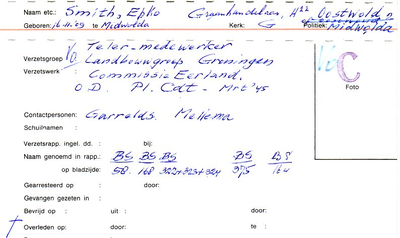 Naam etc.: Smith, Epko Graanhandelaar, A22 Oostwold n
Geboren: 16.11.'09 te Midwolda Kerk: G Politiek: Midwolda
Teler-medewerker
Verzetsgroep Vo. Landbouwgroep Groningen
Verzetswerk : Commissie Eerland.
O.D. Pl. Cdt - Mrt '45
Vo C
Foto
Contactpersonen: Garrelds, Mellema
Schuilnaam :
Verzetsrapp. ingel. dd. : bij:
Naam genoemd in rapp.: BS BS BS BS BS
op bladzijde: 58. 168 322+323+324 375 164
Gearresteerd op : door:
Gevangen gezeten in :
Bevrijd op : uit : door:
Overleden op: door: te :